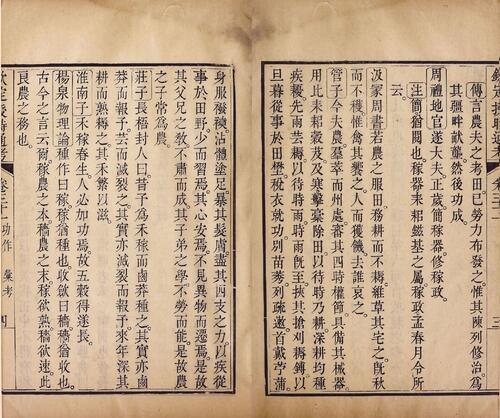 傳言農夫之考田已勞力布發之惟其陳列修治為
其疆畔畎壟然後功成
周禮地官遂大夫正歲簡稼器修稼政
注簡猶閱也稼器耒耜鎡基之屬稼政孟春月令所
云
汲冢周書若農之服田務耕而不耨維草其宅之既秋
而不穫惟禽其饗之人而獲饑去誰哀之
管子今夫農羣萃而州處審其四時權節具備其械器
用比耒耜穀芨及寒擊槀除田以待時乃耕深耕均種
疾耰先雨芸耨以待時雨時雨既至挾其槍刈耨鎛以
旦暮從事於田壄稅衣就功別苗莠列疏遫首戴苧蒲
身服襏襫沾體塗足暴其髮膚盡其四支之力以疾從
事於田野少而習焉其心安焉不見異物而遷焉是故
其父兄之教不肅而成其子弟之學不勞而能是故農
之子常為農
莊子長梧封人曰昔予為禾稼而鹵莽種之其實亦鹵
莽而報予芸而滅裂之其實亦滅裂而報予來年深其
耕而熟耨之其禾繁以滋
淮南子禾稼春生人必加功焉故五穀得遂長
楊泉物理論種作曰稼稼猶種也收斂曰穡穡猶收也
古今之言云爾稼農之本穡農之末稼欲熟穡欲速此
良農之務也
欽定授時通考 卷三十一 功作 彙考 四